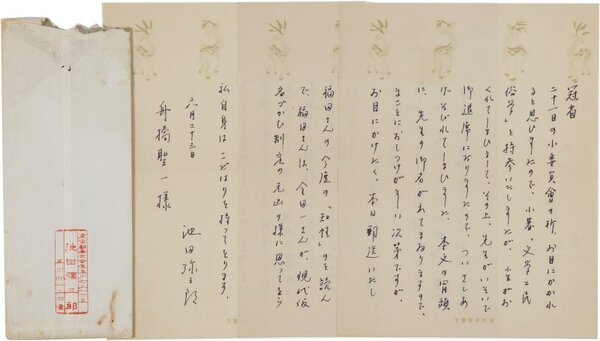 冠省
二十一日の小委員會の折、お目にかかれ
ると思ひましたので、小著「文学と民
俗学」を持参いたしましたが、小生がお
くれてしまひまして、その上、先生がいそいで
御退席になりましたので、ついさしあ
げそびれてしまひました。本文の冒頭
に、先生の御名がでてまゐりますので、
まことにおしつけがましい次第ですが、
お目にかけたく、本日郵送いたし
福田さんの今度の「知性」のを読ん
で、福田さんは、金田一さんが、現代仮
名づかひ制定の元凶の様に思ってをら
私自身は こだはりを持ってをります。
六月二十三日
池田弥三郎
舟橋聖一様
池田彌三郎